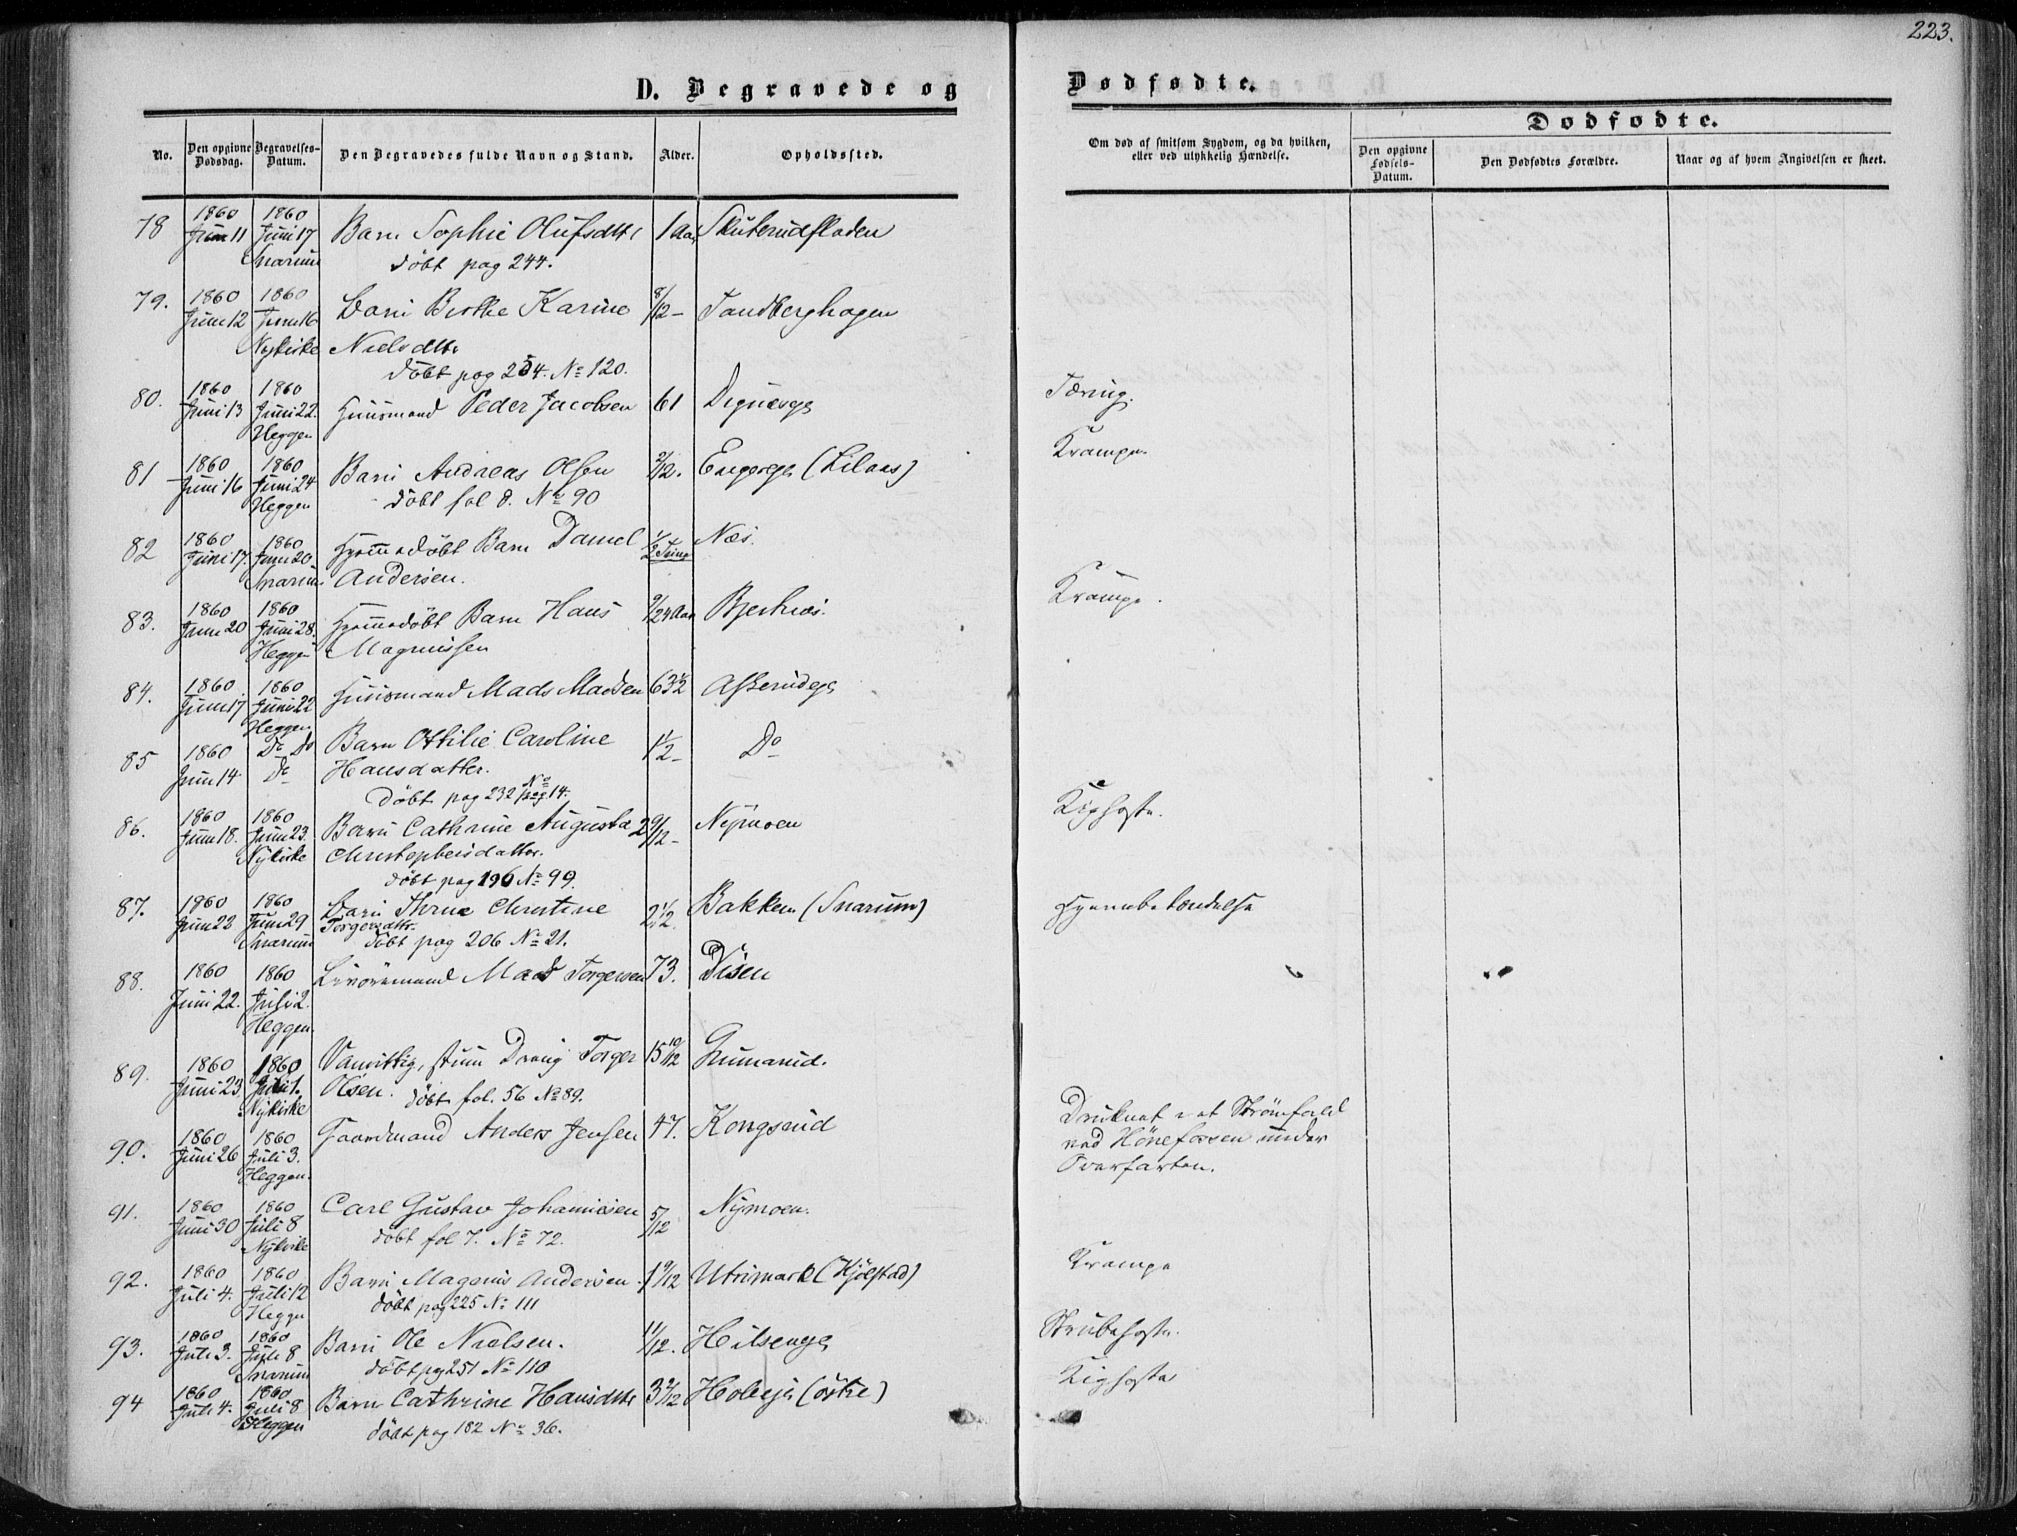 223.
D. Begravede og Dødfødte.
No.
Den opgivne Dødsdag.
Begravelses-Datum.
Den Begravedes fulde Navn og Stand.
Alder.
Opholdssted.
Om død af smitsom Sygdom, og da hvilken, eller ved ulykkelig Hændelse.
Dødfødte.
Den opgivne Fødsels-Datum.
Den Dødfødtes Forældre.
Naar og af hvem Angivelsen er skeet.
78 1860 Juni 11 1860 Juni 17 Snarum Barn Sophie Olufsdtr 1 Aar Skuterudfladen
döbt pag 244.
79. 1860 Juni 12 1860 Juni 16 Nykirke Barn Berthe Karine 8/12 - Tandberghagen
Nielsdtr
döbt pag 254. No 120.
80. 1860 Juni 13 1860 Juni 22. Heggen Huusmand Peder Jacobsen 61 Digneseje Tæring.
81 1860 Juni 16 1860 Juni 24 Heggen Barn Andreas Olsen 2/12. (Lilaas) Krampe.
döbt fol 8. No 90
82 1860 Juni 17. 1860 Juni 20 Snarum Hjemmedöbt Barn Daniel 1/2 Næs.
Andersen.
83. 1860 Juni 20 1860 Juni 28. Heggen Hjemmedöbt Barn Hans 9/24 Aar Krampe.
Magnussen
84. 1860 Juni 17 1860 Juni 22 Heggen Huusmand Mads Madsen 63½ Askerudeje
85 1860 Juni 14 Do Do Do Barn Ottilie Caroline 1½ - Do
Hansdatter.
Döbt pag 232 No 14.
86. 1860 Juni 18. 1860 Juni 23. Nykirke Barn Cathrine Augusta 2 9/12 - Nymoen Kighoste.
Christophersdatter.
döbt pag 196 No 99.
87. 1860 Juni 22 1860 Juni 29 Snarum Barn Thrine Christine 2½. Bakken (Snarum) Hjernebetændelse
Torgersdtr.
döbt pag 206 No 21.
88. 1860 Juni 22. 1860 Juli 2. Heggen. Mads Torgersen 73. Disen
89. 1860 Juni 23 1860 Juli 1. Nykirke Vanvittig, stum Dreng Torger 15 10/12 Gunnarud.
Olsen. döbt fol. 56 No 89.
90. 1860 Juni 26 1860 Juli 3. Heggen. Gaardmand Anders Jensen 47. Kongsrud Druknet i et Strömfald
ved Hönefossen under
Overfarten.
91. 1860 Juni 30 1860 Juli 8 Nykirke Carl Gustav Johannesen 5/12 Nymoen.
döbt fol 7. No 72.
92. 1860 Juli 4. 1860 Juli 12 Heggen Barn Magnus Andersen. 1 9/12 Utrimark (Hjölstad) Krampe
döbt pag 225 No 111
93. 1860 Juli 3. 1860 Juli 8 Snarum Barn Ole Nielsen. 11/12. Hilsenge Strubehoste.
döbt pg 251 No 110
94 1860 Juli 4. 1860 Juli 8 Heggen Barn Cathrine Hansdtr 3 2/12 (östre) Kighoste
döbt pag 182 No 36.